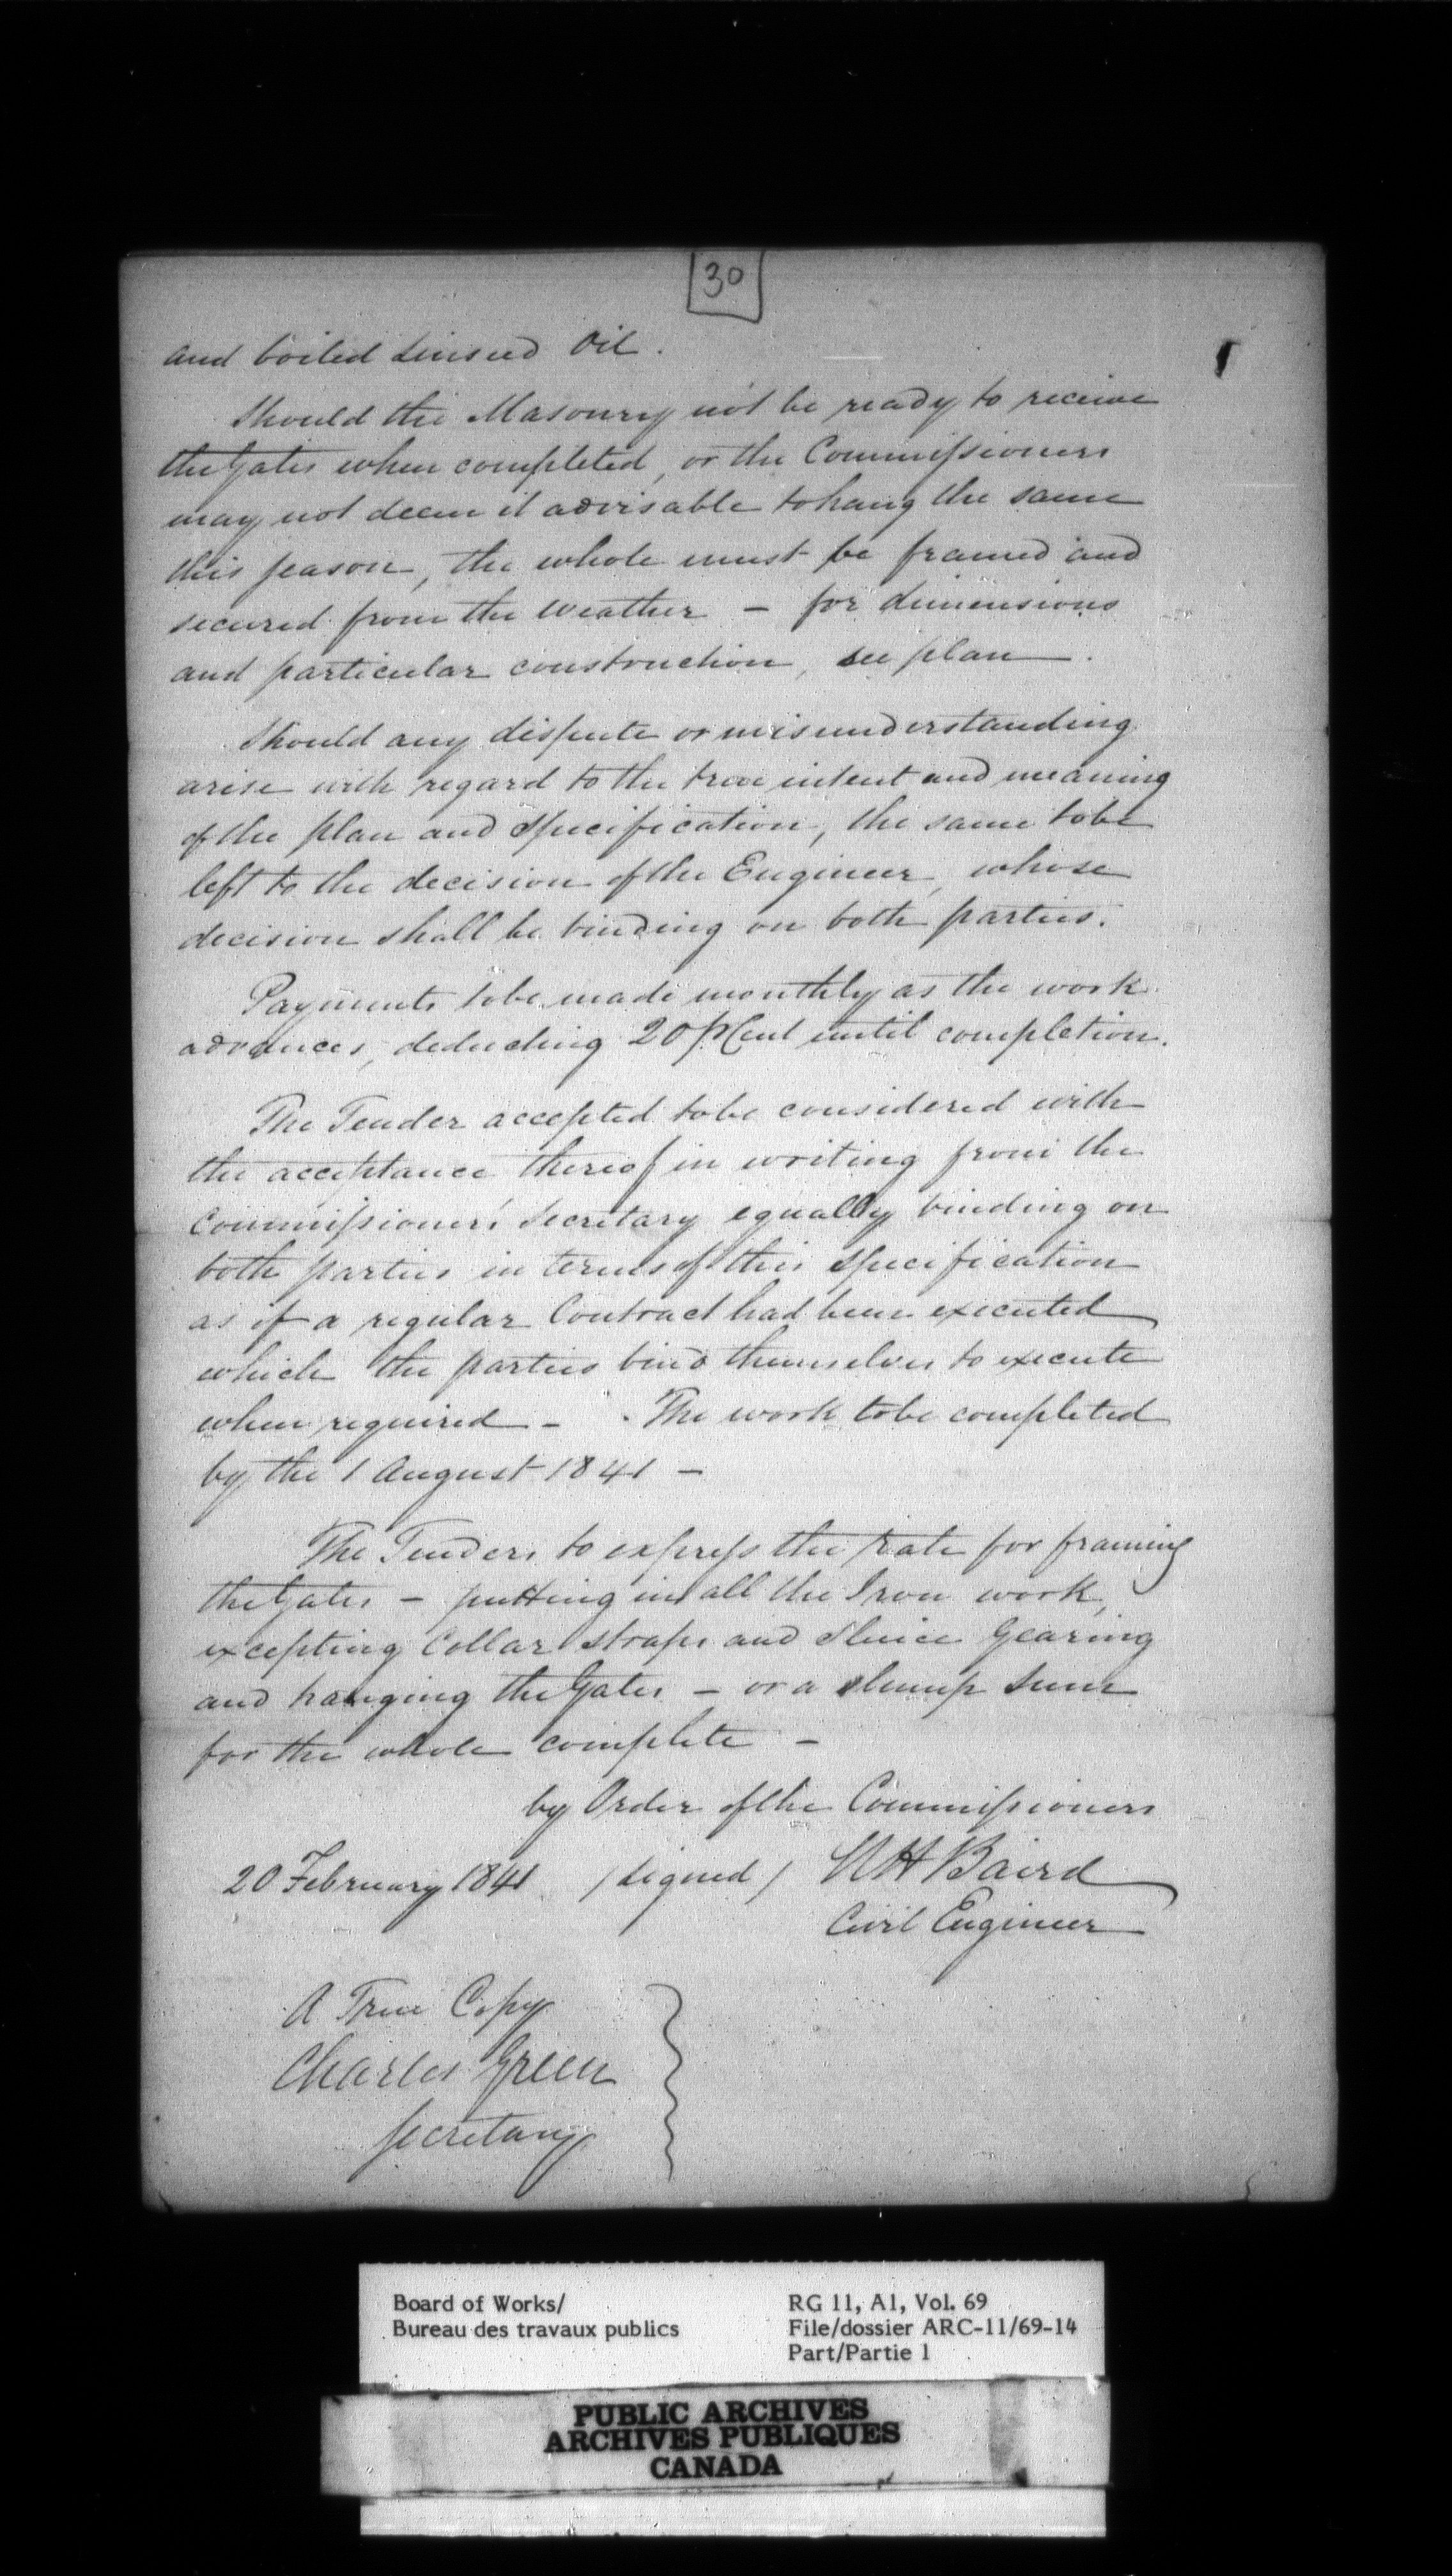 30
and boiled Linseed Oil.
Should the Masonry not be ready to receive
the Gates when completed, or the Commissioners
may not deem it advisable to hang the same
this season, the whole must be framed and
secured from the weather – for dimensions
and particular construction, see plan.
Should any dispute or misunderstanding
arise with regard to the true intent and meaning
of the plan and specification, the same to be
left to the decision of the Engineer, whose
decision shall be binding on both parties.
Payments to be made monthly as the work
advances, deducting 20 p Cent until completion.
The Tender accepted to be considered with
the acceptance thereof in writing from the
Commissioners' Secretary equally binding on
both parties in terms of this specification
as if a regular Contract had been executed
which the parties bind themselves to execute
when required – The work to be completed
by the 1 August 1841 –
The Tenders to express the rate for framing
the Gates – putting in all the Iron work,
excepting Collar straps and Sluice Gearing
and hanging the Gates – or a slump sum
for the whole complete –
by Order of the Commissioners
20 February 1841 (signed) N H Baird
Civil Engineer
A True Copy
Charles Green
Secretary
Board of Works/ RG 11, A1, Vol. 69
Bureau des travaux publics File/dossier ARC-11/69-14
Part/Partie 1
PUBLIC ARCHIVES
ARCHIVES PUBLIQUES
CANADA